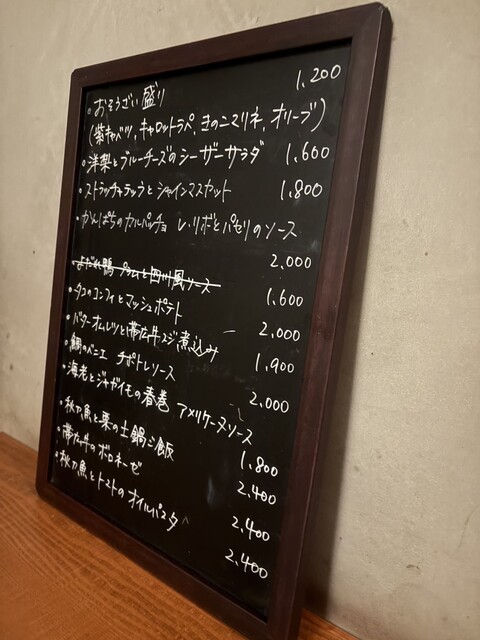 ・おそうざい盛り 1,200
(紫キャベツ, キャロットラペ, きのこマリネ, オリーブ)
・洋梨とブルーチーズのシーザーサラダ 1,600
・ストラッチャテッラとシャインマスカット 1,800
・かんぱちのカルパッチョ レ・リボとパセリのソース
2,000
・よだれ鴨 プラムと四川風ソース 1,600
・タコのコンフィとマッシュポテト 2,000
・バターオムレツと帯広牛スジ煮込み 1,900
・鯛のベニエ チポトレソース 2,000
・海老とジャガイモの春巻 アメリケーヌソース 1,800
・秋刀魚と栗の土鍋ご飯 2,400
・帯広牛のボロネーゼ 2,400
・秋刀魚とトマトのオイルパスタ 2,400